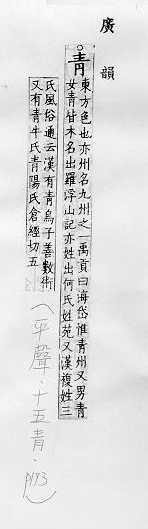 廣韻
○青
東方色也亦州名九州之一禹貢曰海岱惟青州又男青
女青皆木名出羅浮山記亦姓出何氏姓苑又漢複姓三
氏風俗通云漢有青烏子善數術
又有青牛氏青陽氏倉經切五
(平聲．十五青．P193)